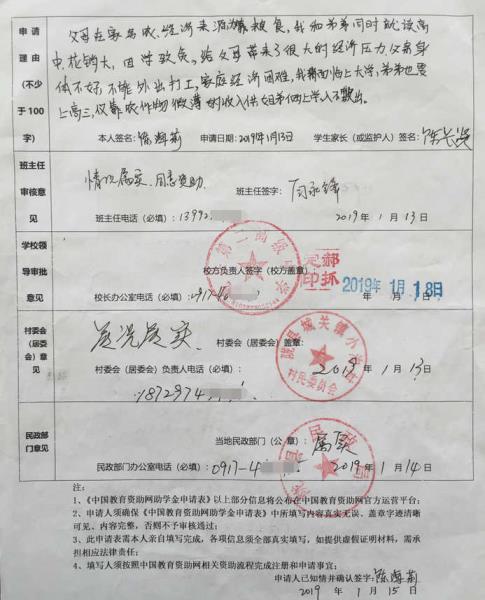 申请理由(不少于100字)
父母在家务农,经济来源靠粮食,我和弟弟同时就读高
中,花销大,因学致贫,给父母带来了很大的经济压力,父亲身
体不好,不能外出打工,家庭经济困难,我面临上大学,弟弟也要
上高三,仅靠农作物微薄的收入供姐弟俩上学入不敷出。
本人签名:陈海莉 申请日期:2019年1月13日 学生家长(或监护人)签名:陈
班主任审核意见
情况属实,同意资助
班主任签字:
班主任电话(必填):13992
2019年1月13日
学校领导审批意见
第二高级中学
校方负责人签字(校方盖章)
郝印
2019年1月18日
校长办公室电话(必填):0917-4
年 月 日
村委会(居委会)意见
情况属实
村委会(居委会)盖章:
城关镇
村民委员会
村委会(居委会)负责人电话(必填):
18729774
2019年1月13日
民政部门意见
当地民政部门(公章):属实
民政局
民政部门办公室电话(必填):0917-4
2019年1月14日
注:
1、《中国教育资助网助学金申请表》以上部分信息将公布在中国教育资助网官方运营平台;
2、申请人须确保《中国教育资助网助学金申请表》中所填写内容真实无误、盖章字迹清晰
可见、内容完整,否则不予审核通过;
3、此申请表需本人亲自填写完成,各项信息须全部真实填写,如提供虚假证明材料,需承
担相应法律责任;
4、填写人须按照中国教育资助网相关资助流程完成注册和申请事宜;
申请人已知情并确认签字:陈海莉
2019年1月15日